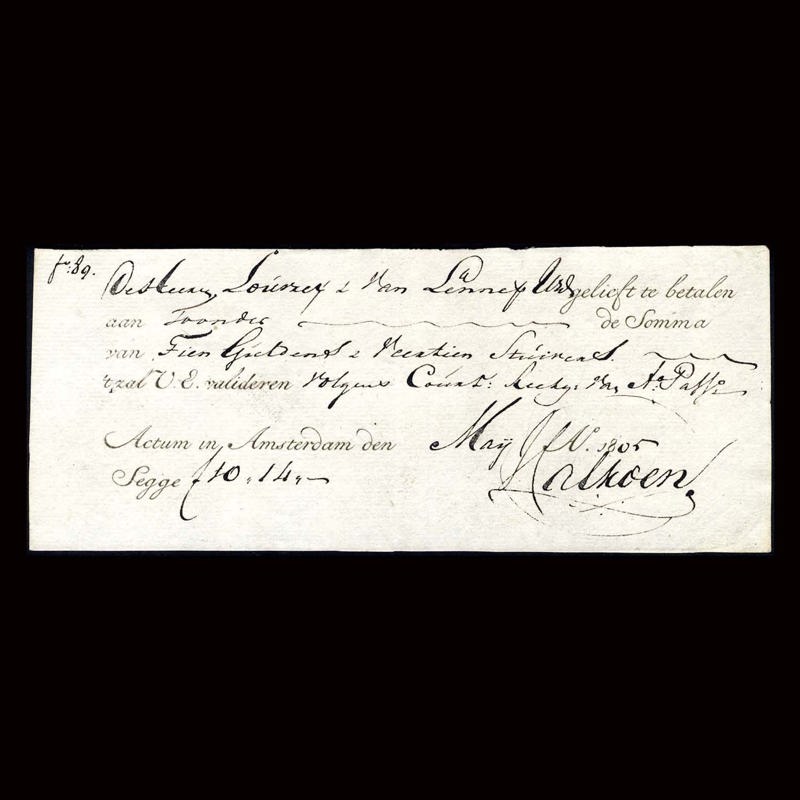 fo: 89.
De Heeren Lourrey & Van Lennep Uw gelieft te betalen
aan Toonder de Somma
van Tien Guldens & Veertien Stuivers.
'tzal U.E. valideren volgens Cour:t Reekg: van
Actum in Amsterdam den May 1805
Segge f 10 " 14 " —
Valkoen